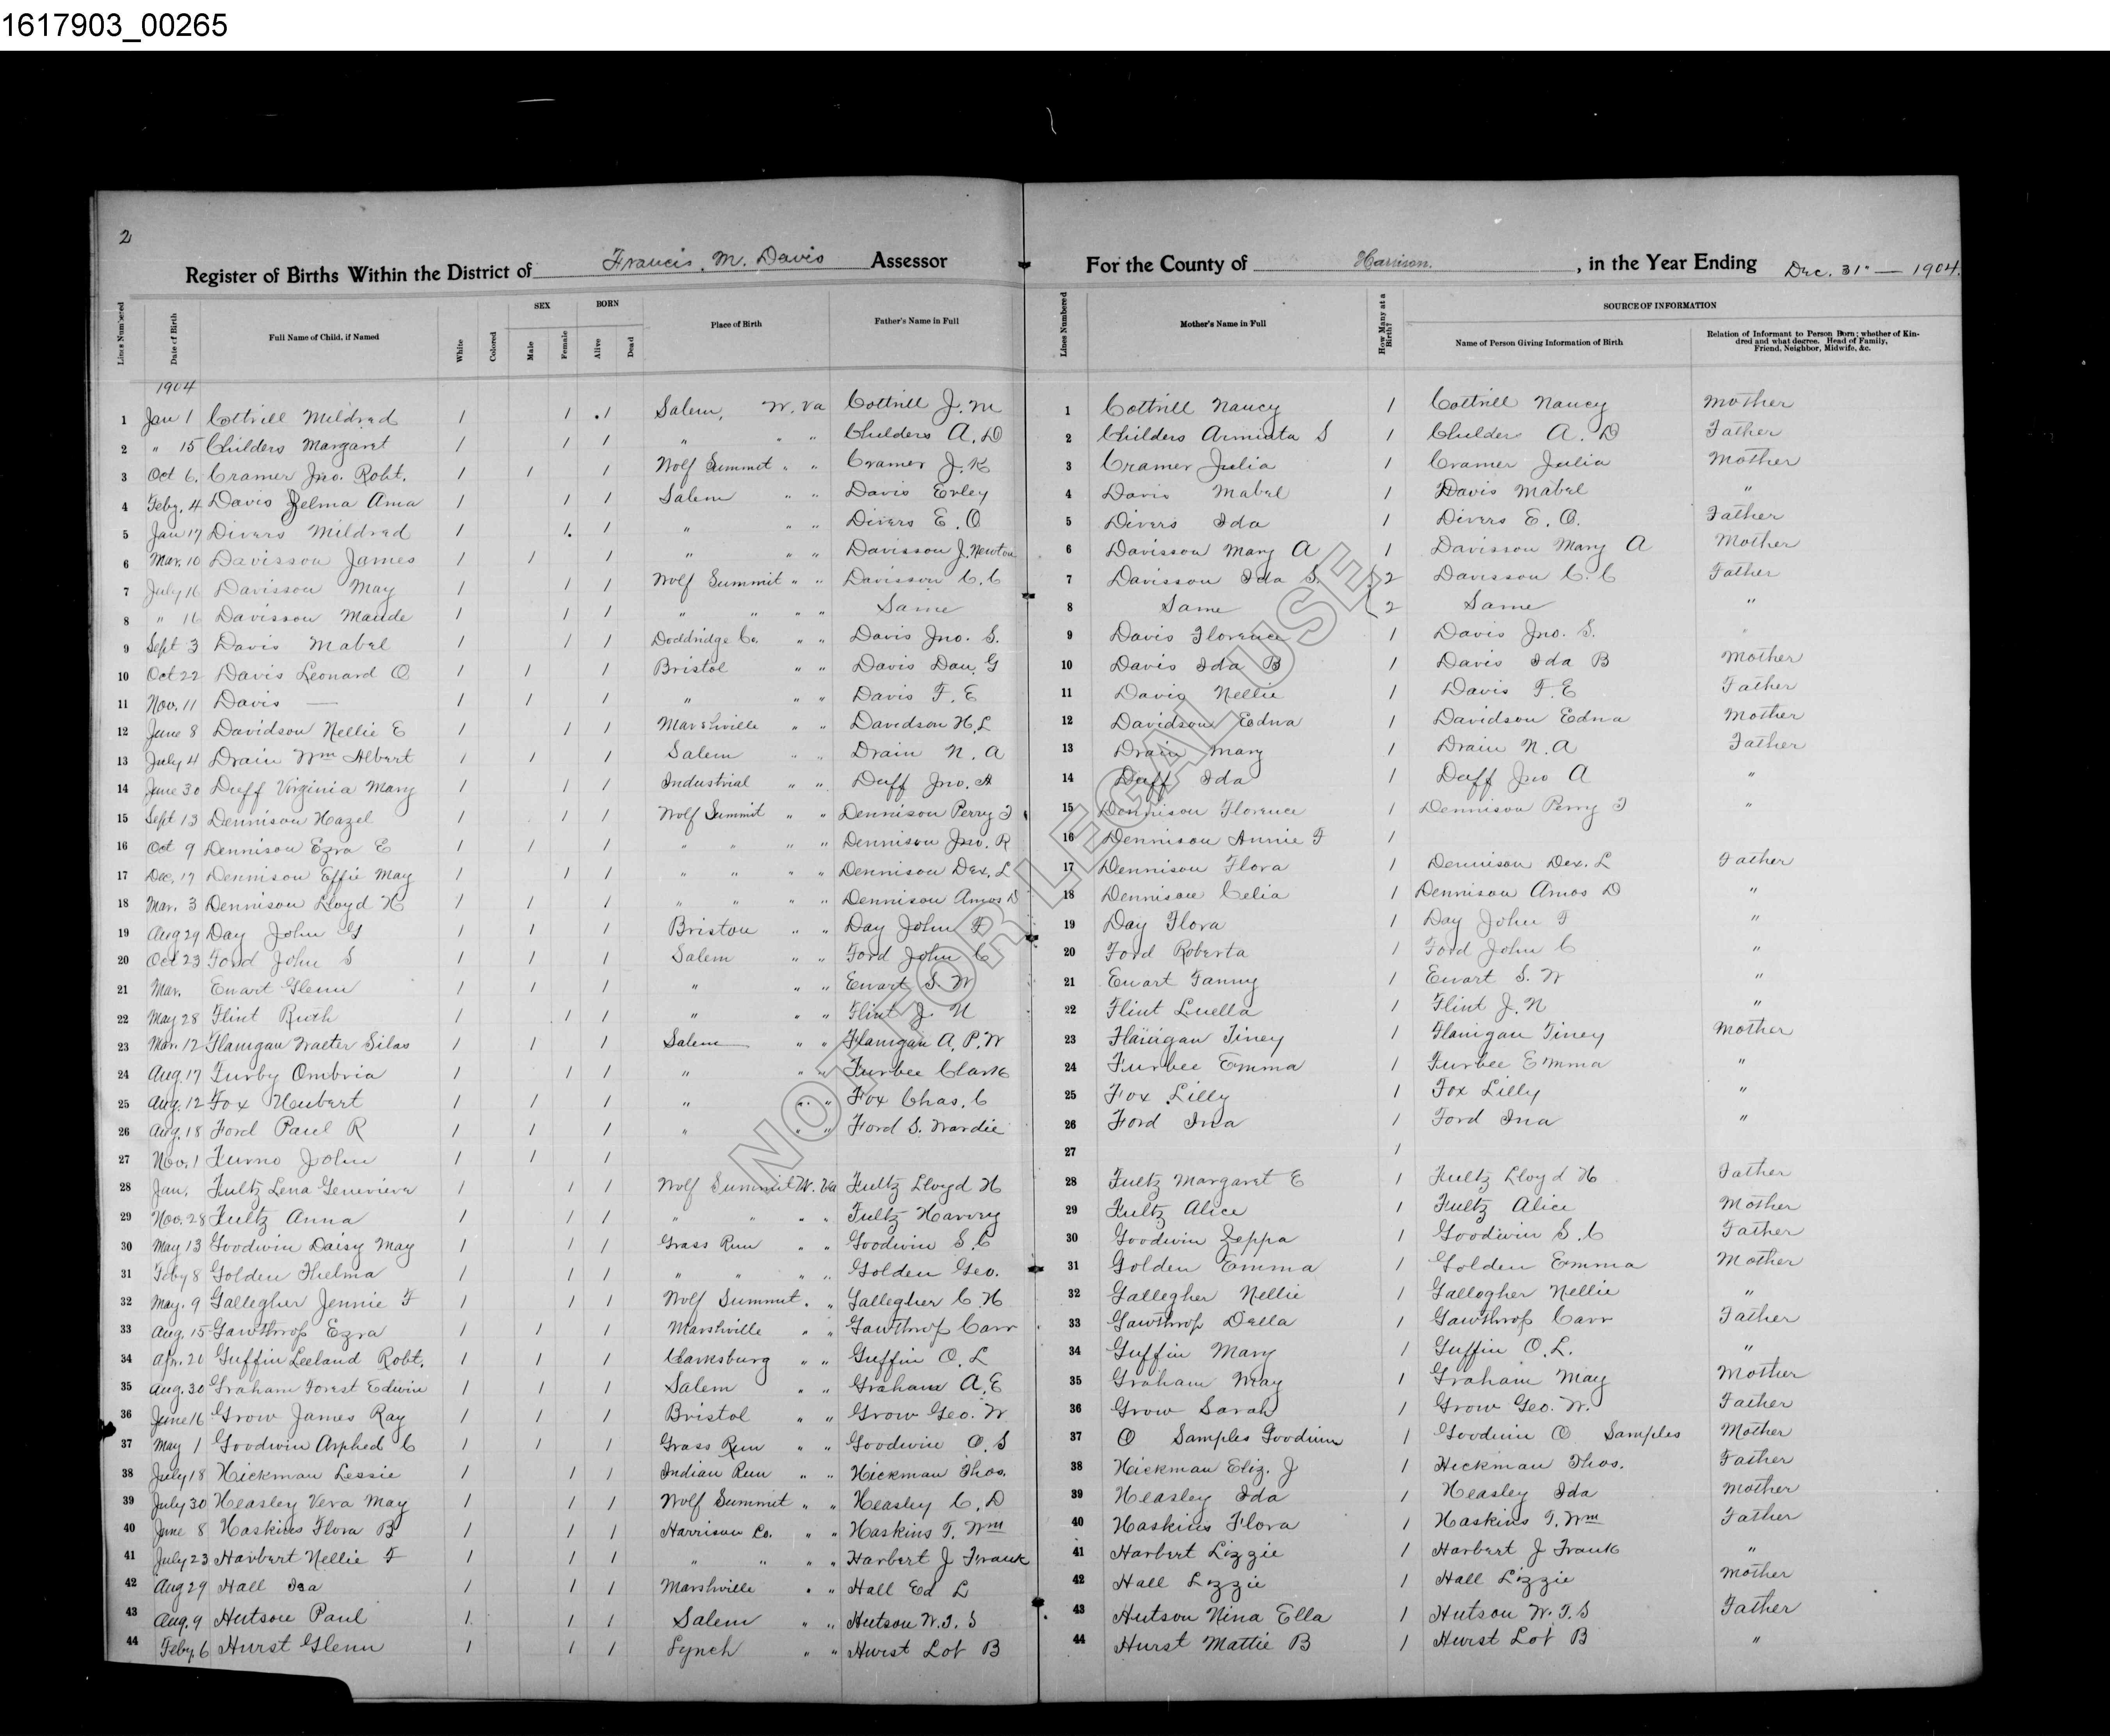 1617903_00265
2
Register of Births Within the District of Francis. M. Davis Assessor For the County of Harrison. , in the Year Ending Dec. 31" — 1904.
Lines Numbered Date of Birth Full Name of Child, if Named White Colored SEX Male Female BORN Alive Dead Place of Birth Father's Name in Full Lines Numbered Mother's Name in Full How Many at a Birth? SOURCE OF INFORMATION Name of Person Giving Information of Birth Relation of Informant to Person Born; whether of Kindred and what degree. Head of Family, Friend, Neighbor, Midwife, &c.
1904
1 Jan 1 Cottrill Mildred 1 1 1 Salem, W. Va Cottrill J. M 1 Cottrill Nancy 1 Cottrill Nancy Mother
2 " 15 Childers Margaret 1 1 1 " " " Childers A. D 2 Childers Arminta S 1 Childers A. D Father
3 Oct 6. Cramer Jno. Robt. 1 1 1 Wolf Summit " " Cramer J. K 3 Cramer Julia 1 Cramer Julia Mother
4 Feby. 4 Davis Zelma Ama 1 1 1 Salem " " Davis Erley 4 Davis Mabel 1 Davis Mabel "
5 Jan 17 Divers Mildred 1 1 1 " " " Divers E. O 5 Divers Ida 1 Divers E. O. Father
6 Mar. 10 Davisson James 1 1 1 " " " Davisson J. Newton 6 Davisson Mary A 1 Davisson Mary A Mother
7 July 16 Davisson May 1 1 1 Wolf Summit " " Davisson C. C 7 Davisson Ida S. 2 Davisson C. C Father
8 " 16 Davisson Maude 1 1 1 " " " " Same 8 Same 2 Same "
9 Sept 3 Davis Mabel 1 1 1 Doddridge Co. " " Davis Jno. S. 9 Davis Florence 1 Davis Jno. S. "
10 Oct 22 Davis Leonard O 1 1 1 Bristol " " Davis Dan. G 10 Davis Ida B 1 Davis Ida B Mother
11 Nov. 11 Davis — 1 1 1 " " " Davis F. E 11 Davis Nellie 1 Davis F. E Father
12 June 8 Davidson Nellie E 1 1 1 Marshville " " Davidson H. L 12 Davidson Edna 1 Davidson Edna Mother
13 July 4 Drain Wm Albert 1 1 1 Salem " " Drain N. A 13 Drain Mary 1 Drain N. A Father
14 June 30 Duff Virginia Mary 1 1 1 Industrial " " Duff Jno. A 14 Duff Ida 1 Duff Jno A "
15 Sept 13 Dennison Hazel 1 1 1 Wolf Summit " " Dennison Perry I 15 Dennison Florence 1 Dennison Perry I "
16 Oct 9 Dennison Ezra E 1 1 1 " " " " Dennison Jno. R 16 Dennison Annie F 1
17 Dec. 17 Dennison Effie May 1 1 1 " " " " Dennison Dex. L 17 Dennison Flora 1 Dennison Dex. L Father
18 Mar. 3 Dennison Lloyd H 1 1 1 " " " " Dennison Amos D 18 Dennison Celia 1 Dennison Amos D "
19 Aug 29 Day John G 1 1 1 Bristou " " Day John F 19 Day Flora 1 Day John F "
20 Oct 23 Ford John S 1 1 1 Salem " " Ford John C 20 Ford Roberta 1 Ford John C "
21 Mar. Ewart Glenn 1 1 1 " " " Ewart S. W 21 Ewart Fanny 1 Ewart S. W "
22 May 28 Flint Ruth 1 1 1 " " " Flint J. N 22 Flint Luella 1 Flint J. N "
23 Mar. 12 Flanigan Walter Silas 1 1 1 Salem " " Flanigan A. P. W 23 Flanigan Tiney 1 Flanigan Tiney Mother
24 Aug. 17 Furby Ombria 1 1 1 " " " Furbee Clark 24 Furbee Emma 1 Furbee Emma "
25 Aug. 12 Fox Hubert 1 1 1 " " " Fox Chas. C 25 Fox Lilly 1 Fox Lilly "
26 Aug. 18 Ford Paul R 1 1 1 " " " Ford S. Wardie 26 Ford Ina 1 Ford Ina "
27 Nov. 1 Furno John 1 1 1 27 1
28 Jan. Fultz Lena Genevieve 1 1 1 Wolf Summit W. Va Fultz Lloyd H 28 Fultz Margaret E 1 Fultz Lloyd H Father
29 Nov. 28 Fultz Anna 1 1 1 " " " " Fultz Harvey 29 Fultz Alice 1 Fultz Alice Mother
30 May 13 Goodwin Daisy May 1 1 1 Grass Run " " Goodwin S. C 30 Goodwin Zeppa 1 Goodwin S. C Father
31 Feby 8 Golden Thelma 1 1 1 " " " " Golden Geo. 31 Golden Emma 1 Golden Emma Mother
32 May. 9 Gallegher Jennie F 1 1 1 Wolf Summit. " Gallegher C. H 32 Gallegher Nellie 1 Gallogher Nellie "
33 Aug. 15 Gawthrop Ezra 1 1 1 Marshville " " Gawthrop Carr 33 Gawthrop Della 1 Gawthrop Carr Father
34 Apr. 20 Guffin Leeland Robt. 1 1 1 Clarksburg " " Guffin O. L 34 Guffin Mary 1 Guffin O. L. "
35 Aug. 30 Graham Forest Edwin 1 1 1 Salem " " Graham A. E 35 Graham May 1 Graham May Mother
36 June 16 Grow James Ray 1 1 1 Bristol " " Grow Geo. W 36 Grow Sarah 1 Grow Geo. W. Father
37 May 1 Goodwin Arphed C 1 1 1 Grass Run " " Goodwin O. S 37 O Samples Goodwin 1 Goodwin O Samples Mother
38 July 18 Hickman Lessie 1 1 1 Indian Run " " Hickman Thos. 38 Hickman Eliz. J 1 Hickman Thos. Father
39 July 30 Heasley Vera May 1 1 1 Wolf Summit " " Heasley C. D 39 Heasley Ida 1 Heasley Ida Mother
40 June 8 Haskins Flora B 1 1 1 Harrison Co. " " Haskins T. Wm 40 Haskins Flora 1 Haskins T. Wm Father
41 July 23 Harbert Nellie F 1 1 1 " " " " Harbert J Frank 41 Harbert Lizzie 1 Harbert J Frank "
42 Aug 29 Hall Isa 1 1 1 Marshville " " Hall Ed L 42 Hall Lizzie 1 Hall Lizzie Mother
43 Aug. 9 Hutson Paul 1 1 1 Salem " " Hutson W. T. S 43 Hutson Nina Ella 1 Hutson W. T. S Father
44 Feby. 6 Hurst Glenn 1 1 1 Lynch " " Hurst Lot B 44 Hurst Mattie B 1 Hurst Lot B "
NOT FOR LEGAL USE